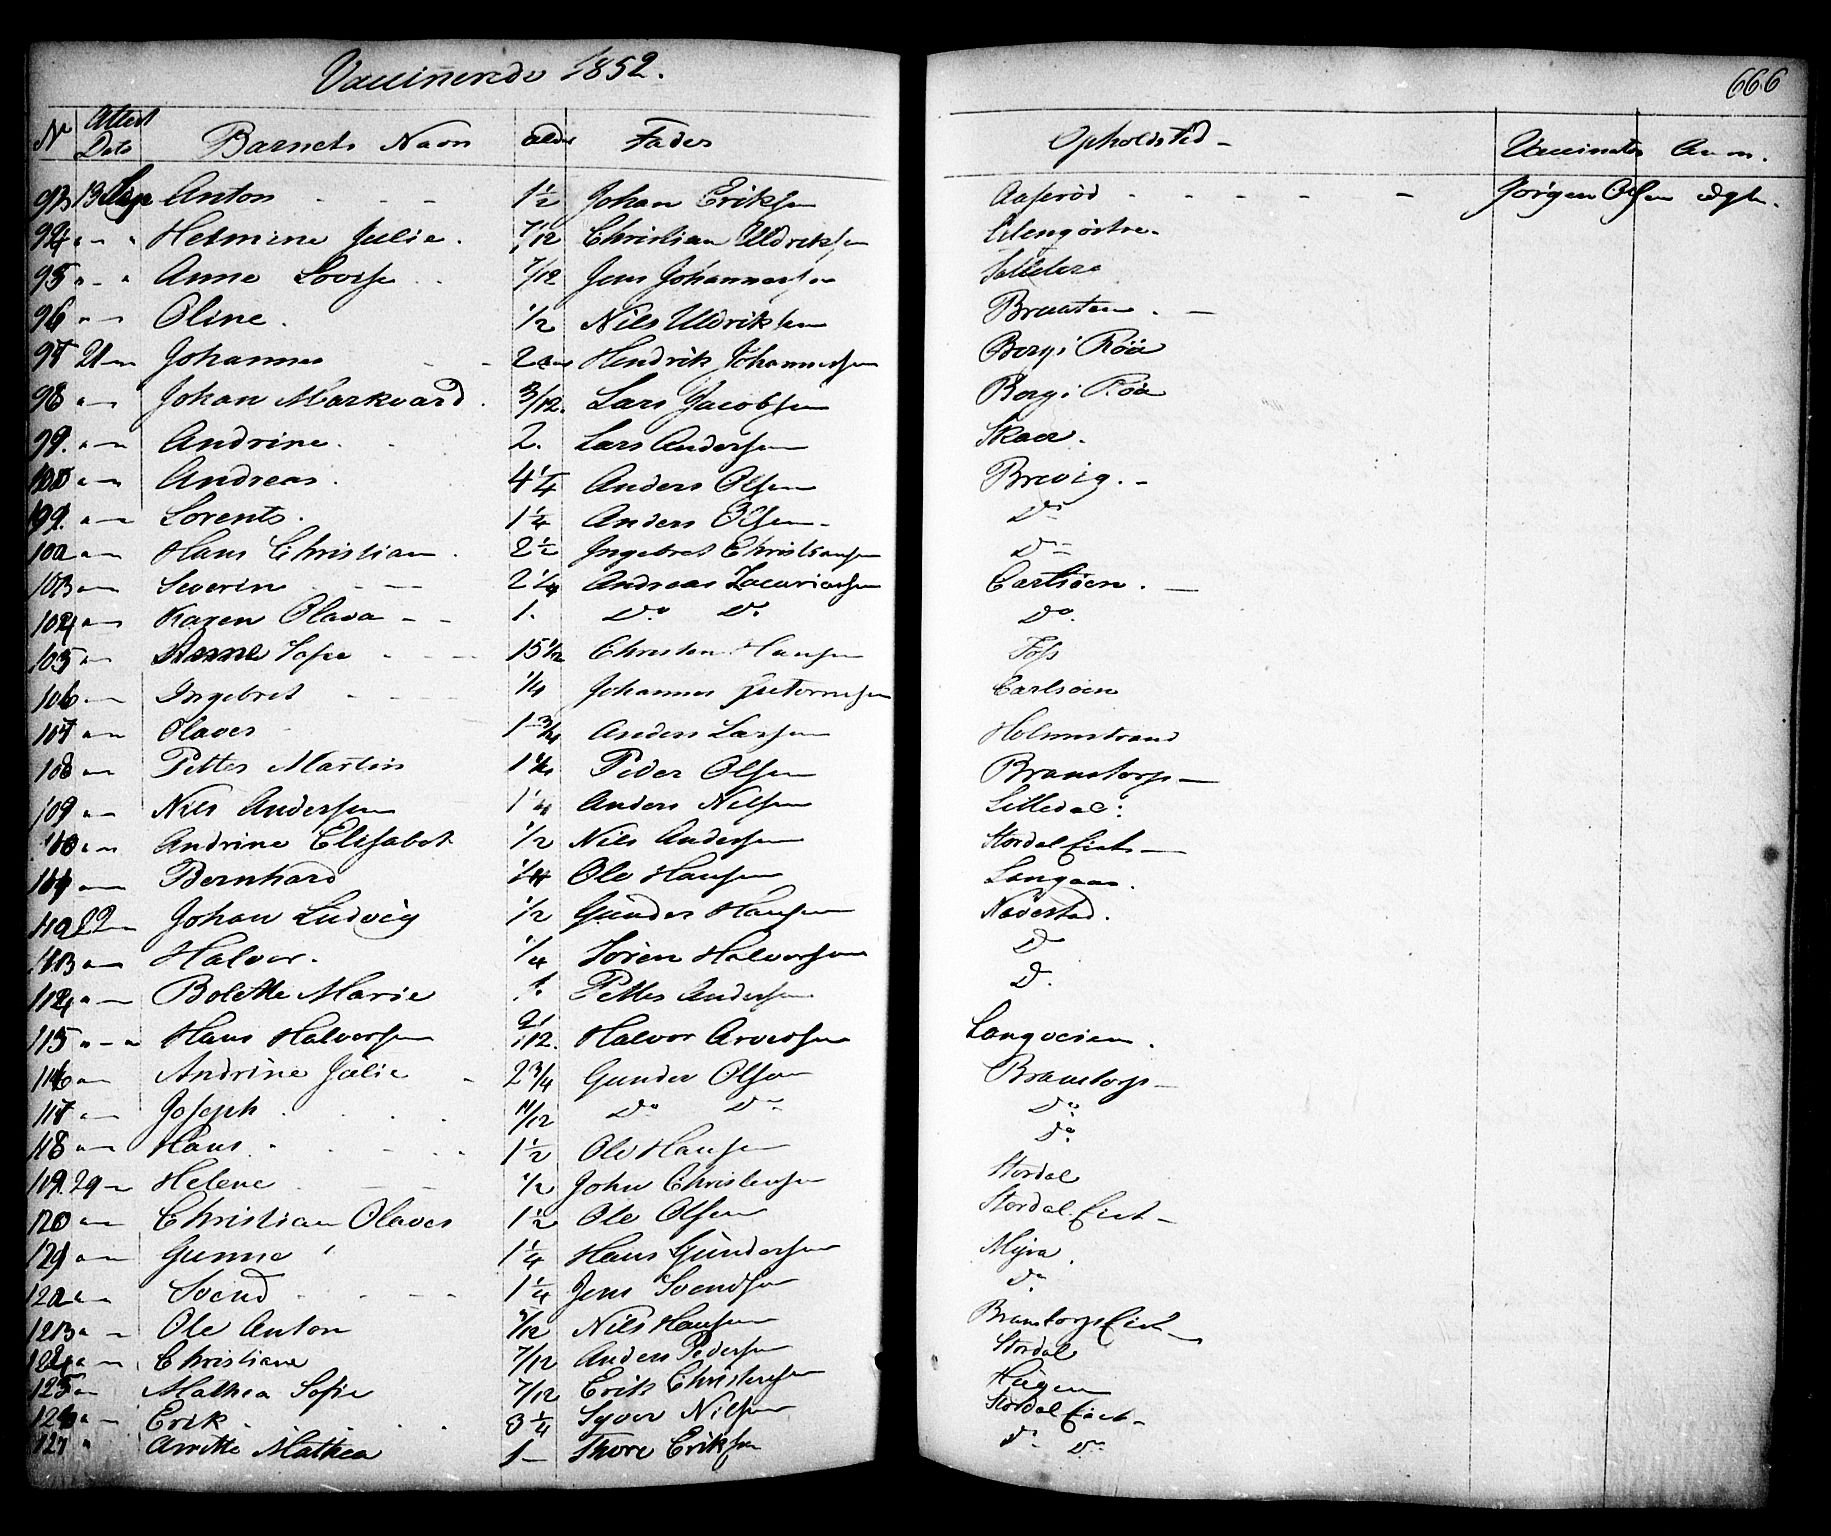 Vaccinerede 1852.
666
No Attest Dato Barnets Navn alder Fader Opholdsted - Vaccinator Anm.
93 13 Sep Anton 1½ Johan Eriksen Aaserød - - - - Jørgen Olsen
94 " - " Helmine Julie. 7/12 Christian Uldriksen
95 " - " Anne Lovise 7/12 Jens Johannessen
96 " - Oline. 1/2 Nils Uldriksen Braaten. -
97 21 - Johannes - - 2 Hendrik Johannessen Berg i Röd
98 " - Johan Markvard. 3/12. Lars Jacobsen Berg i Röd
99. " - Andrine. 2. Lars Andersen Skaar.
100 " - Andreas. 4¼ Anders Olsen Brevig. -
" - Lorents. 1¼ Anders Olsen - Do
102 " - Hans Christian. 2½ Ingebret Christiansen Do
103 " - Severin - - 2¼ Andreas Zacariasen Carlsöen. -
104 " - Karen Olava - - 1. Do Do Do.
105 " - Anne Sofie - - 15 1/2 Christen Hansen Foss
106 " - Ingebret - - 1/4 Johannes Carlsöen
107 " - Olaves 1 3/4 Anders Larsen Holmstrand
108 " - Petter Martin 1¼ Peder Olsen Bramstorp -
109 " - Nils Andersen 1¼ Anders Nilsen Litledal:
110 " - Andrine Elisabet 1/2 Nils Andersen Stordal Eiet -
" - Bernhard 1/4 Ole Hansen Langaas.
22 - Johan Ludvig 1/2 Gunder Hansen Navestad.
113 " - Halvor. 1/4 Sören Halvorsen Do
114 " - Bolette Marie 1. Petter Andersen D.
115 " - " Hans Halvorsen 9/12. Halvor Arvesen
116 " - Andrine Julie - 2¾ Gunder Olsen Bramstorp -
117 " - Joseph. 11/12 Do Do Do
118 " - Hans - 1½ Ole Hansen Do
119. 29 - Helene - - 1/2 John Christensen Stordal
120 " - Christian Olaves 1½ Ole Olsen Stordal Eiet -
121 " - Gunne 1¼ Hans Gundersen Myra.
122 " - Svend - - 1¼ Jens Svendsen Do
123 " - Ole Anton /12 Nils Hansen Bramstorp Eiet -
124 " - Christiane 7/12 Anders Pedersen Stordal
125 " - Mathea Sofie 7/12 Erik Christensen Hagen
126 " - Erik. 3¼ Syver Nilsen Stordal Eiet -
127 " Anette Mathea 1 - Thore Eriksen Do Do